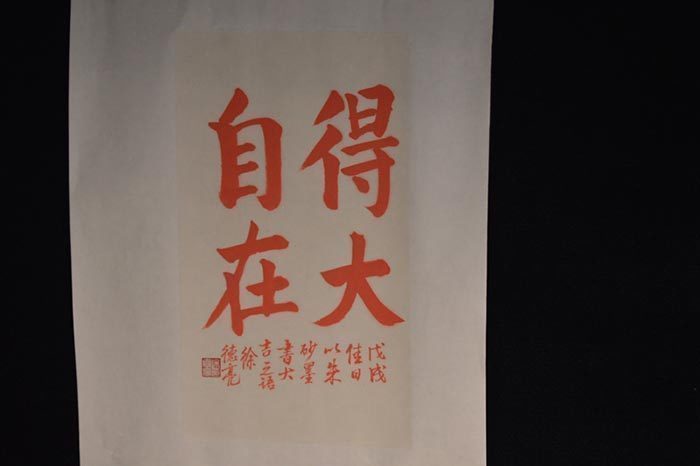 得大
自在
戊戌
佳日
以朱
砂墨
書大
吉之語
徐
德亮